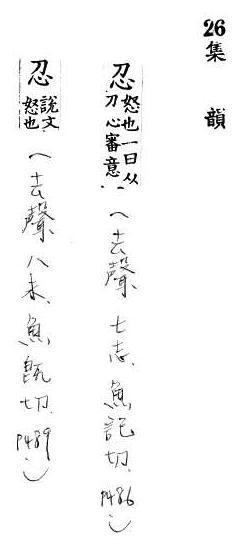 26集 韻
忍怒也一曰从刀心審意(去聲七志,魚記切,P486)
忍說文怒也(去聲八未,魚旣切,P489)